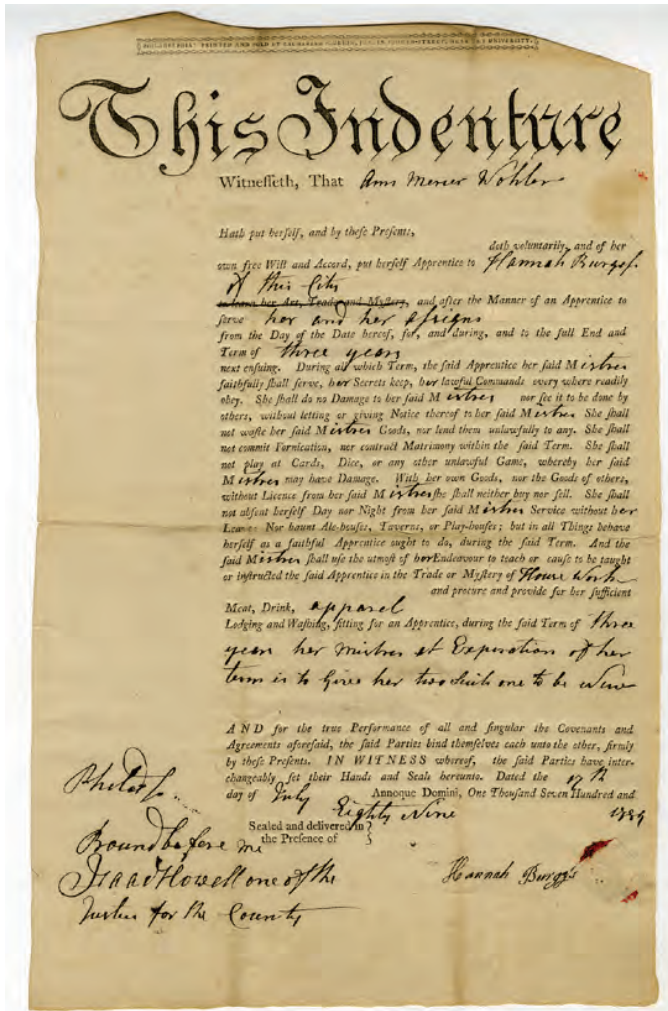 PHILADELPHIA: PRINTED AND SOLD AT
This Indenture
Witneſſeth, That Ann Mercer Wohler
Hath put herſelf, and by theſe Preſents,
doth voluntarily, and of her
own free Will and Accord, put herſelf Apprentice to Hannah Burgeſs
of this City
to learn her Art, Trade and Myſtery, and after the Manner of an Apprentice to
ſerve her and her aſsigns
from the Day of the Date hereof, for, and during, and to the full End and
Term of three years
next enſuing. During all which Term, the ſaid Apprentice her ſaid Miſtres
faithfully ſhall ſerve, her Secrets keep, her lawful Commands every where readily
obey. She ſhall do no Damage to her ſaid Miſtres nor ſee it to be done by
others, without letting or giving Notice thereof to her ſaid Miſtres She ſhall
not waſte her ſaid Miſtres Goods, nor lend them unlawfully to any. She ſhall
not commit Fornication, nor contract Matrimony within the ſaid Term. She ſhall
not play at Cards, Dice, or any other unlawful Game, whereby her ſaid
Miſtres may have Damage. With her own Goods, nor the Goods of others,
without Licence from her ſaid Miſtres ſhe ſhall neither buy nor ſell. She ſhall
not abſent herſelf Day nor Night from her ſaid Miſtres Service without her
Leave: Nor haunt Ale-houſes, Taverns, or Play-houſes; but in all Things behave
herſelf as a faithful Apprentice ought to do, during the ſaid Term. And the
ſaid Miſtres ſhall uſe the utmoſt of her Endeavour to teach or cauſe to be taught
or inſtructed the ſaid Apprentice in the Trade or Myſtery of Houſe Work
and procure and provide for her ſufficient
Meat, Drink, apparel
Lodging and Waſhing, fitting for an Apprentice, during the ſaid Term of three
years her Mistres at Experation of her
term is to Give her two one to be New
AND for the true Performance of all and ſingular the Covenants and
Agreements aforeſaid, the ſaid Parties bind themſelves each unto the other, firmly
by theſe Preſents. IN WITNESS whereof, the ſaid Parties have inter-
changeably ſet their Hands and Seals hereunto. Dated the 17th
day of July Annoque Domini, One Thouſand Seven Hundred and
Eighty Nine 1789
Sealed and delivered in
the Preſence of
Bound before me
Isaac Howell one of the
Justices for the County
Hannah Burggs